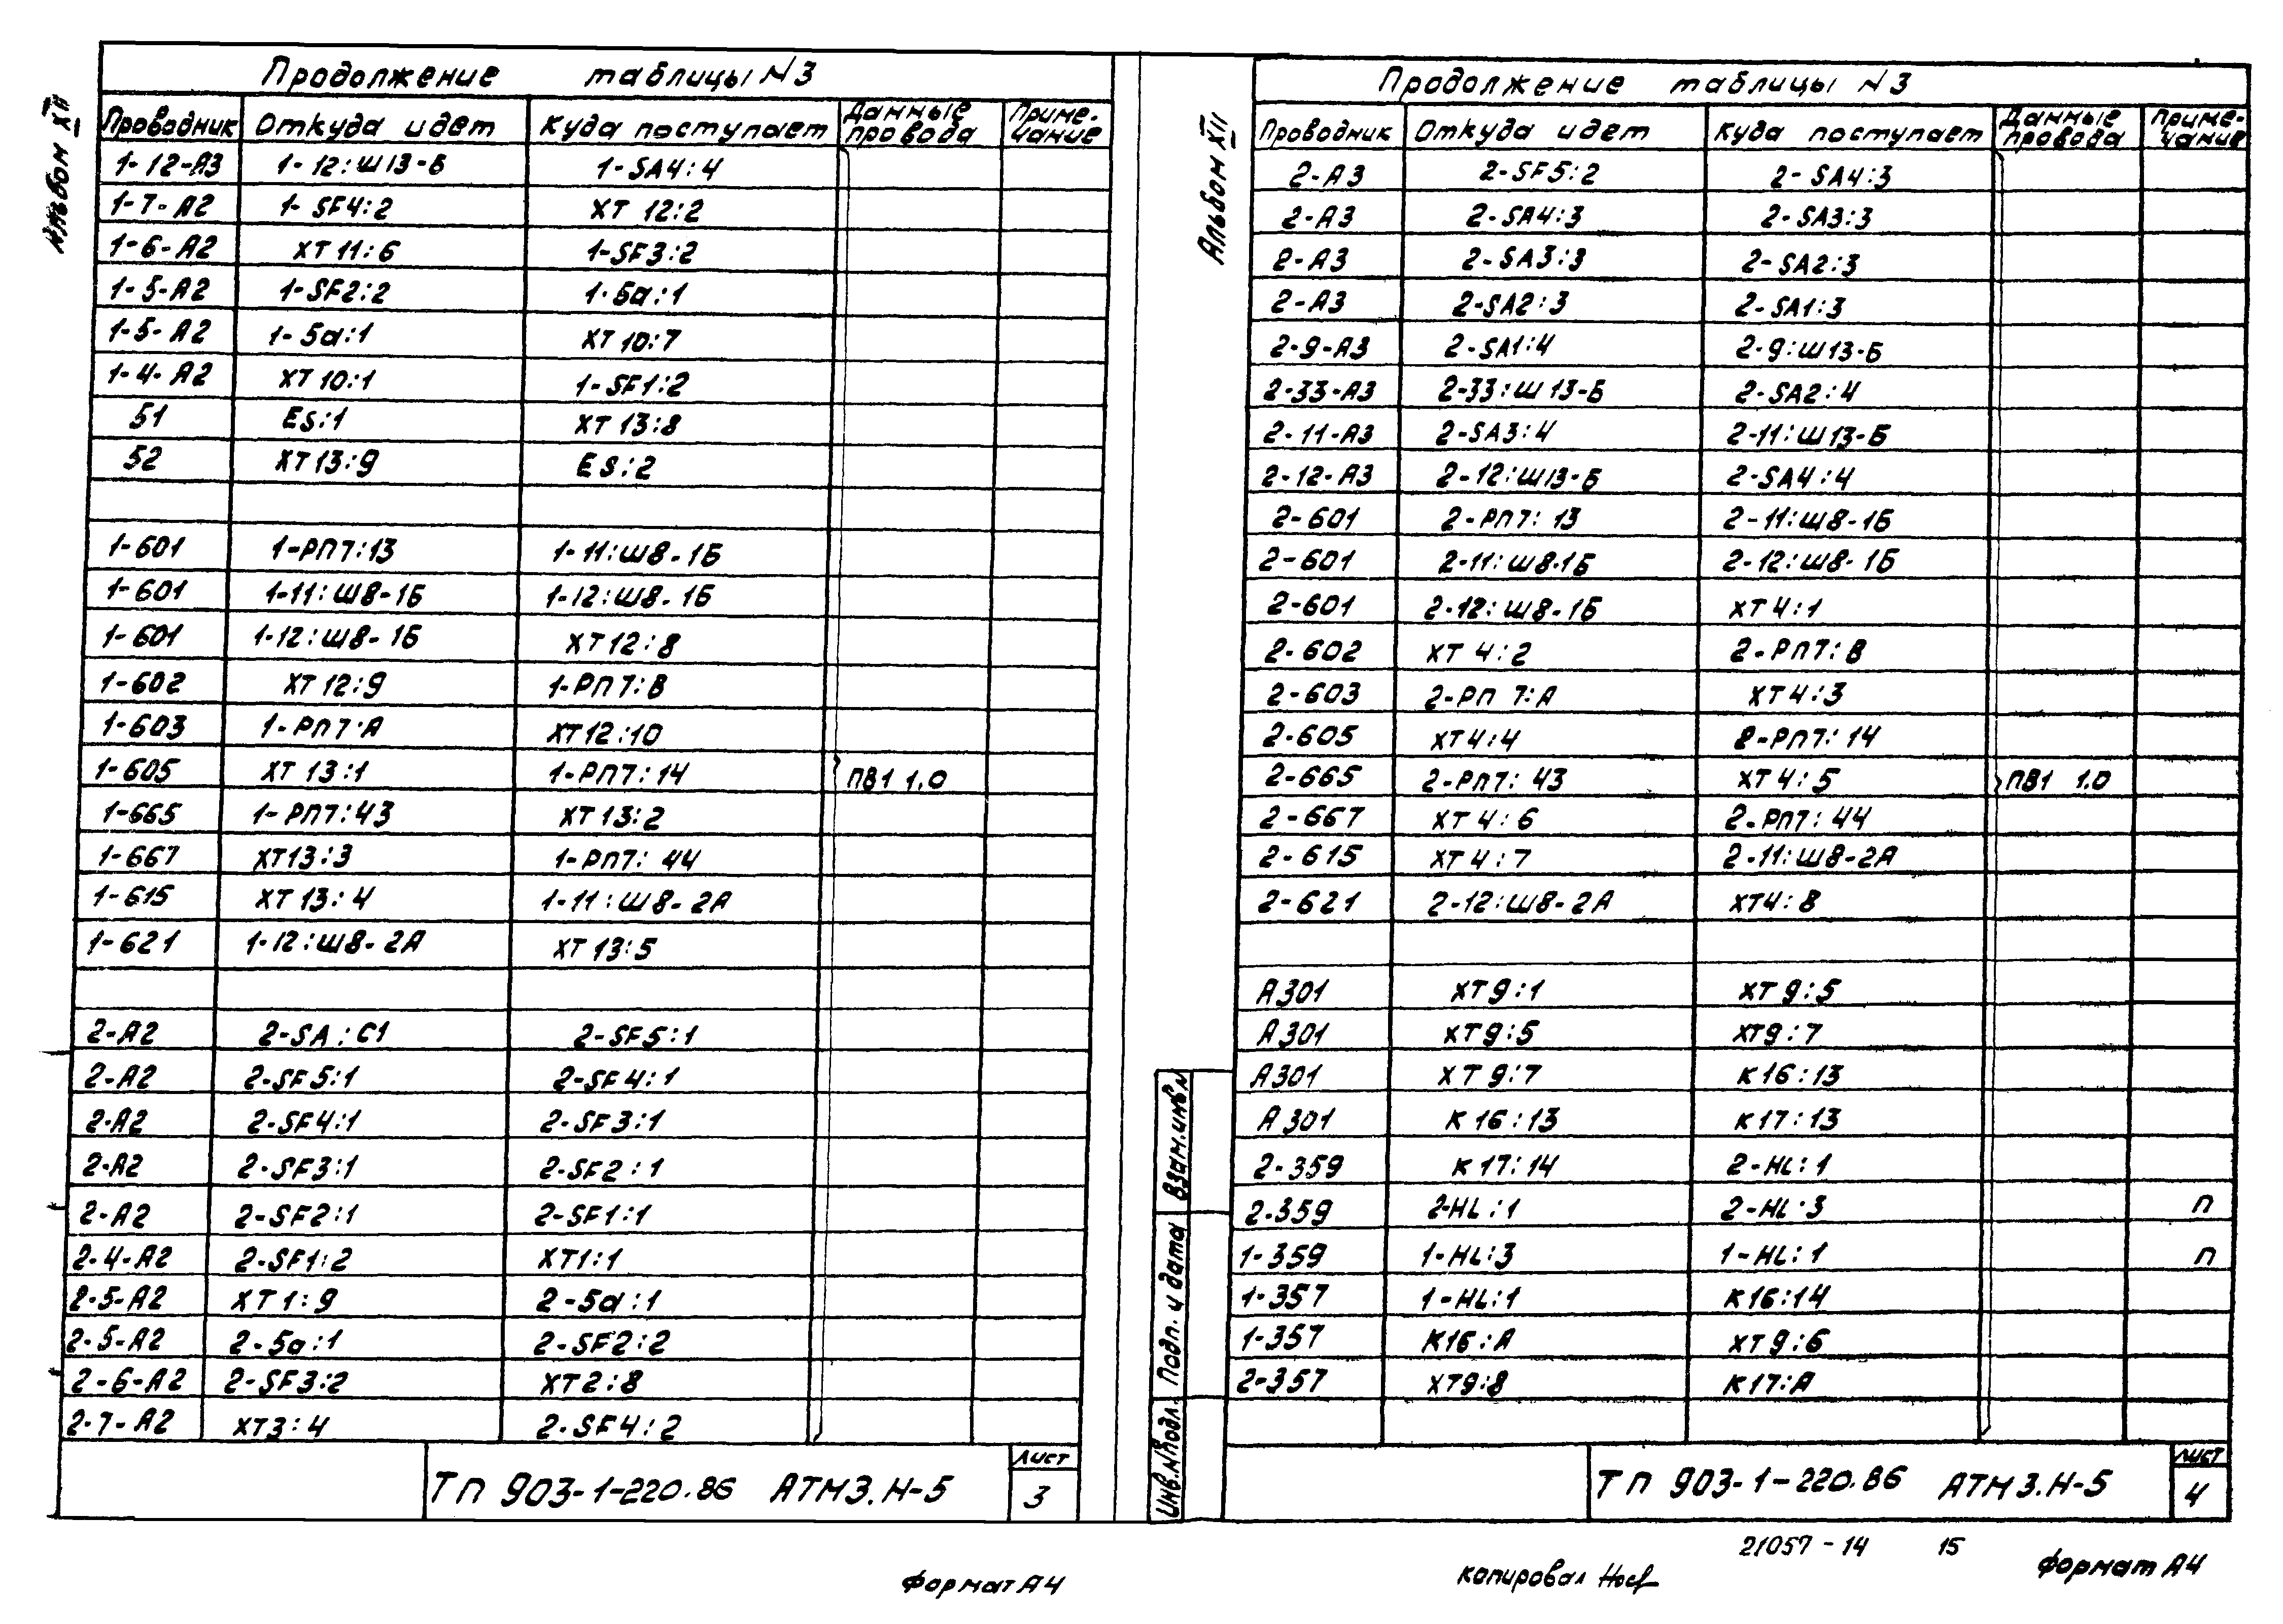 Альбом XII
Продолжение таблицы N3
Проводник Откуда идет Куда поступает Данные провода Примечание
1-12-А3 1-12:Ш13-Б 1-SA4:4
1-7-А2 1-SF4:2 ХТ12:2
1-6-А2 ХТ11:6 1-SF3:2
1-5-А2 1-SF2:2 1-5а:1
1-5-А2 1-5а:1 ХТ10:7
1-4-А2 ХТ10:1 1-SF1:2
51 ES:1 ХТ13:8
52 ХТ13:9 ES:2
1-601 1-РП7:13 1-11:Ш8-1Б
1-601 1-11:Ш8-1Б 1-12:Ш8-1Б
1-601 1-12:Ш8-1Б ХТ12:8
1-602 ХТ12:9 1-РП7:В
1-603 1-РП7·А ХТ12:10
1-605 ХТ13:1 1-РП7:14 ПВ1 1.0
1-665 1-РП7:43 ХТ13:2
1-667 ХТ13:3 1-РП7:44
1-615 ХТ13:4 1-11:Ш8-2А
1-621 1-12:Ш8-2А ХТ13:5
2-А2 2-SA:C1 2-SF5:1
2-А2 2-SF5:1 2-SF4:1
2-А2 2-SF4:1 2-SF3:1
2-А2 2-SF3:1 2-SF2:1
2-А2 2-SF2:1 2-SF1:1
2-4-А2 2-SF1:2 ХТ1:1
2-5-А2 ХТ1:9 2-5а:1
2-5-А2 2-5а:1 2-SF2:2
2-6-А2 2-SF3:2 ХТ2:8
2-7-А2 ХТ3:4 2-SF4:2
ТП 903-1-220.86 АТМ3.Н-5
Лист
3
Формат А4
Альбом XII
Продолжение таблицы N3
Проводник Откуда идет Куда поступает Данные провода Примечание
2-А3 2-SF5:2 2-SA4:3
2-А3 2-SA4:3 2-SA3:3
2-А3 2-SA3:3 2-SA2:3
2-А3 2-SA2:3 2-SA1:3
2-9-А3 2-SA1:4 2-9:Ш13-Б
2-33-А3 2-33:Ш13-Б 2-SA2:4
2-11-А3 2-SA3:4 2-11:Ш13-Б
2-12-А3 2-12:Ш13-Б 2-SA4:4
2-601 2-РП7:13 2-11:Ш8-1Б
2-601 2-11:Ш8-1Б 2-12:Ш8-1Б
2-601 2-12:Ш8-1Б ХТ4:1
2-602 ХТ4:2 2-РП7:В
2-603 2-РП7:А ХТ4:3
2-605 ХТ4:4 2-РП7:14
2-665 2-РП7:43 ХТ4:5 ПВ1 1.0
2-667 ХТ4:6 2-РП7:44
2-615 ХТ4:7 2-11:Ш8-2А
2-621 2-12:Ш8-2А ХТ4:8
А301 ХТ9:1 ХТ9:5
А301 ХТ9:5 ХТ9:7
А301 ХТ9:7 К16:13
А301 К16:13 К17:13
2-359 К17:14 2-HL:1
2-359 2-HL:1 2-HL·3 П
1-359 1-HL:3 1-HL:1 П
1-357 1-HL:1 К16:14
1-357 К16:А ХТ9:6
2-357 ХТ9:8 К17:А
Взам.инв.N
Подп. и дата
Инв.N подл.
ТП 903-1-220.86 АТМ3.Н-5
Лист
4
21057-14 15
Копировал
Формат А4